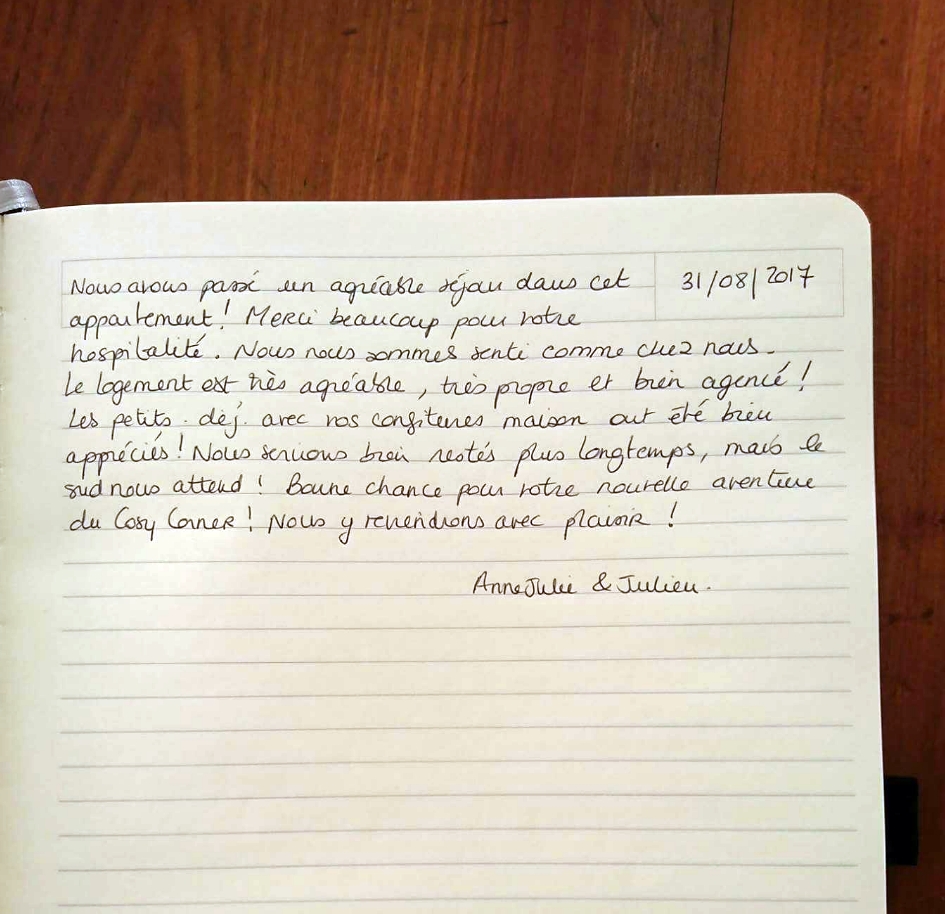 Nous avons passé un agréable séjour dans cet
31/08/2017
appartement ! Merci beaucoup pour votre
hospitalité. Nous nous sommes senti comme chez nous.
Le logement est très agréable, très propre et bien agencé !
Les petits-déj. avec vos confitures maison ont été bien
appréciés ! Nous serions bien restés plus longtemps, mais le
sud nous attend ! Bonne chance pour votre nouvelle aventure
du Cosy Corner ! Nous y reviendrons avec plaisir !
AnneJulie & Julien.